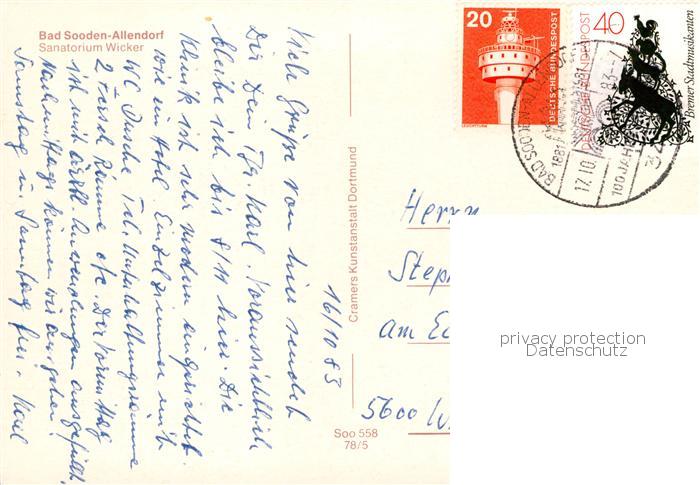 Bad Sooden-Allendorf
Sanatorium Wicker
16/10 83
Viel Grüße von hier sendet
Dir Dein Karl. Voraussichtlich
bleibe ich bis 8/11 hier. Die
Klinik ist sehr modern eingerichtet
wie ein Hotel. Einzelzimmer mit
WC Dusche Tel. Unterhaltungsräume
2 Fernseh Räume etc. Der Vormittag
ist mit ärztl. Anwendungen ausgefüllt.
Nachmittags können wir ausgehen.
Samstag u. Sonntag frei. Karl
Cramers Kunstanstalt Dortmund
Soo 558
78/5
20
DEUTSCHE BUNDESPOST
LEUCHTTURM
40
DEUTSCHE BUNDESPOST
Bremer Stadtmusikanten
BAD SOODEN-
1881
17.10.83
100 JAH
Herrn
Steph
am E
5600 W
privacy protection
Datenschutz